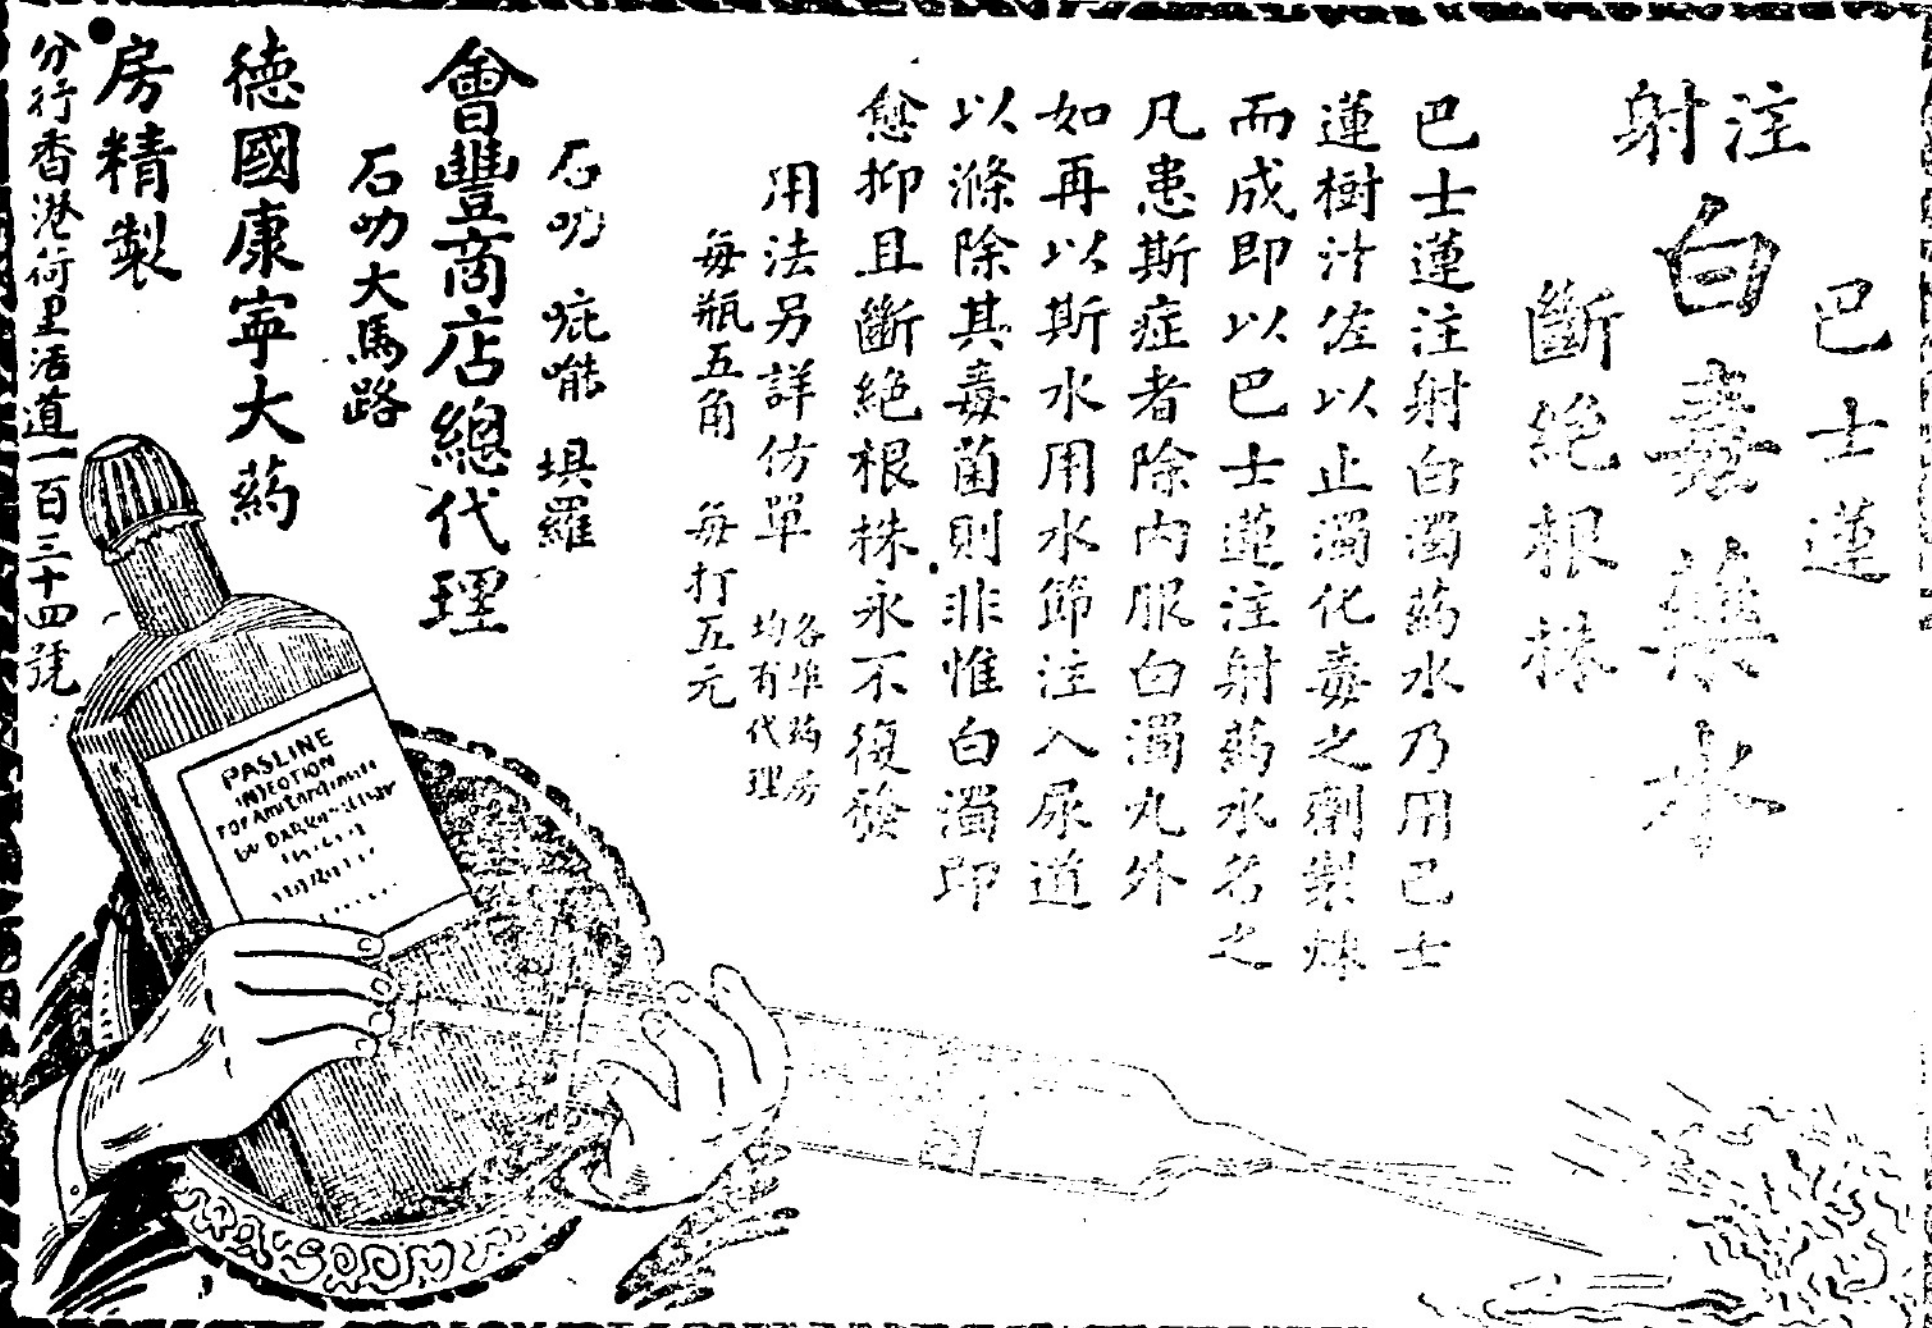 注射
巴士蓮
白毒藥水
斷絕根株
巴士蓮注射白濁葯水乃用巴士
蓮樹汁佐以止濁化毒之劑製煉
而成即以巴士蓮注射葯水名之
凡患斯症者除内服白濁丸外
如再以斯水用水節注入尿道
以滌除其毒菌則非惟白濁即
愈抑且斷絕根株永不復發
用法另詳仿單
各埠葯房
均有代理
每瓶五角 每打五元
石叻 庇能 埧羅
會豐商店總代理
石叻大馬路
德國康寧大葯
房精製
分行香港荷里活道一百三十四號
PASLINE
INJECTION